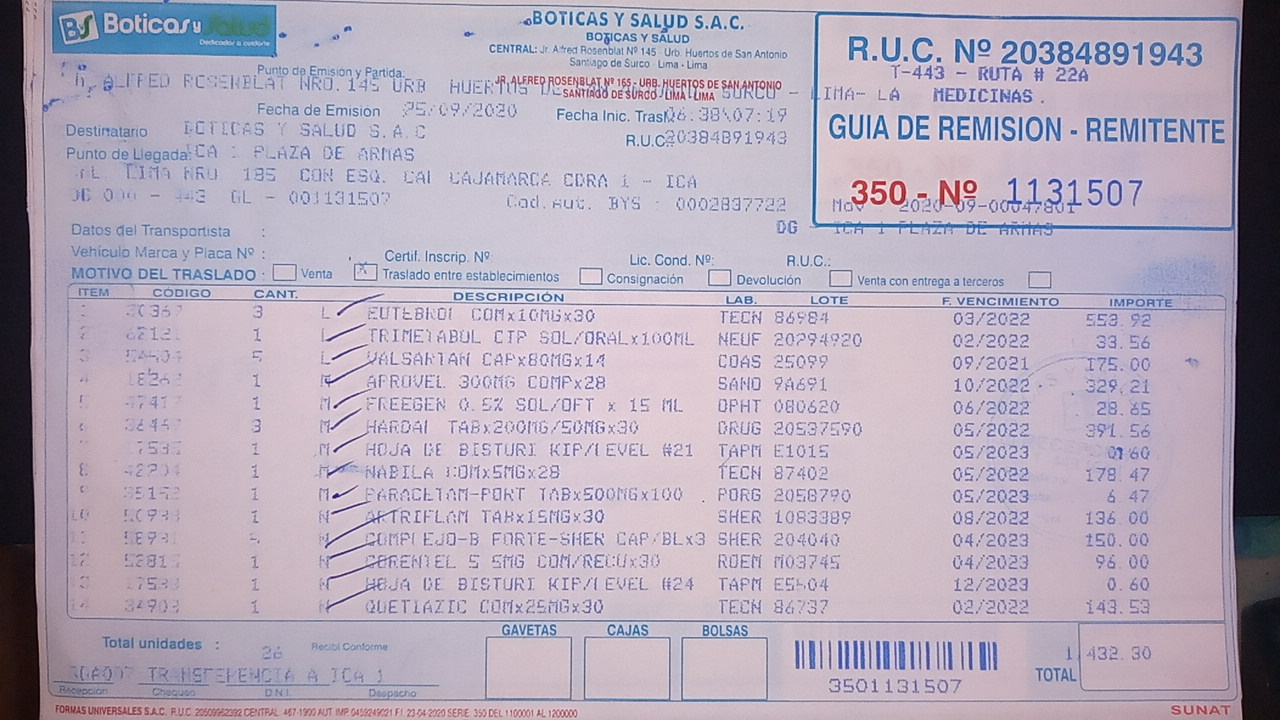 BS Boticas y Salud
Dedicados a cuidarte
BOTICAS Y SALUD S.A.C.
BOTICAS Y SALUD
CENTRAL: Jr. Alfred Rosenblat Nº 145 Urb. Huertos de San Antonio
Santiago de Surco - Lima - Lima
R.U.C. Nº 20384891943
T-443 - RUTA # 22A
Punto de Emisión y Partida:
JR. ALFRED ROSENBLAT Nº 165 - URB. HUERTOS DE SAN ANTONIO
SANTIAGO DE SURCO - LIMA - LIMA
ALFRED ROSENBLAT NRO. 145 URB HUERTOS SURCO - LIMA- LA MEDICINAS.
Fecha de Emisión 25/09/2020 Fecha Inic. Trasl. 26.38\07:19
GUIA DE REMISION - REMITENTE
Destinatario BOTICAS Y SALUD S.A.C R.U.C. 20384891943
Punto de Llegada: ICA 1 PLAZA DE ARMAS
CAL LIMA NRO 185 CON ESQ. CAL CAJAMARCA CDRA 1 - ICA
350 - Nº 1131507
GL - 001131507 Cod.Aut. BYS : 0002837722 Mov 2020-09-00047801
DG - ICA 1 PLAZA DE ARMAS
Datos del Transportista :
Vehículo Marca y Placa Nº : Certif. Inscrip. Nº Lic. Cond. Nº: R.U.C.:
MOTIVO DEL TRASLADO : Venta X Traslado entre establecimientos Consignación Devolución Venta con entrega a terceros
ITEM CÓDIGO CANT. DESCRIPCIÓN LAB. LOTE F. VENCIMIENTO IMPORTE
1 3 L EUTEBROL COMx10MGx30 TECN 86984 03/2022 553.92
2 1 L TRIMETABOL CTP SOL/ORALx100ML NEUF 20294920 02/2022 33.56
3 5 L VALSARTAN CAPx80MGx14 COAS 25099 09/2021 175.00
4 1 M APROVEL 300MG COMPx28 SANO 9A691 10/2022 329.21
5 1 M FREEGEN 0.5% SOL/OFT x 15 ML OPHT 080620 06/2022 28.65
6 3 M HARDAI TABx200MG/50MGx30 DRUG 20537590 05/2022 391.56
1 M HOJA DE BISTURI KIP/LEVEL #21 TAPM E1015 05/2023 0.60
8 1 M NABILA COMx5MGx28 TECN 87402 05/2022 178.47
9 1 M PARACETAM-PORT TABx500MGx100 PORG 2058790 05/2023 6.47
10 1 N ARTRIFLAM TABx15MGx30 SHER 1083389 08/2022 136.00
11 N COMPLEJO-B FORTE-SHER CAP/BLx3 SHER 204040 04/2023 150.00
12 1 N CORENTEL 5 5MG COM/RECUx30 ROEM M03745 04/2023 96.00
13 1 N HOJA DE BISTURI KIP/LEVEL #24 TAPM 12/2023 0.60
14 34903 1 N QUETIAZIC COMx25MGx30 TECN 86737 02/2022 143.53
Total unidades : 26 Recibí Conforme GAVETAS CAJAS BOLSAS
TRANSFERENCIA A ICA 1
Recepción Chequeo D.N.I. Despacho
3501131507
TOTAL 1,432.30
FORMAS UNIVERSALES S.A.C. R.U.C. 20509962392 CENTRAL: 467-1900 AUT. IMP. 0459249021 F.I. 23-04-2020 SERIE. 350 DEL 1100001 AL 1200000
SUNAT